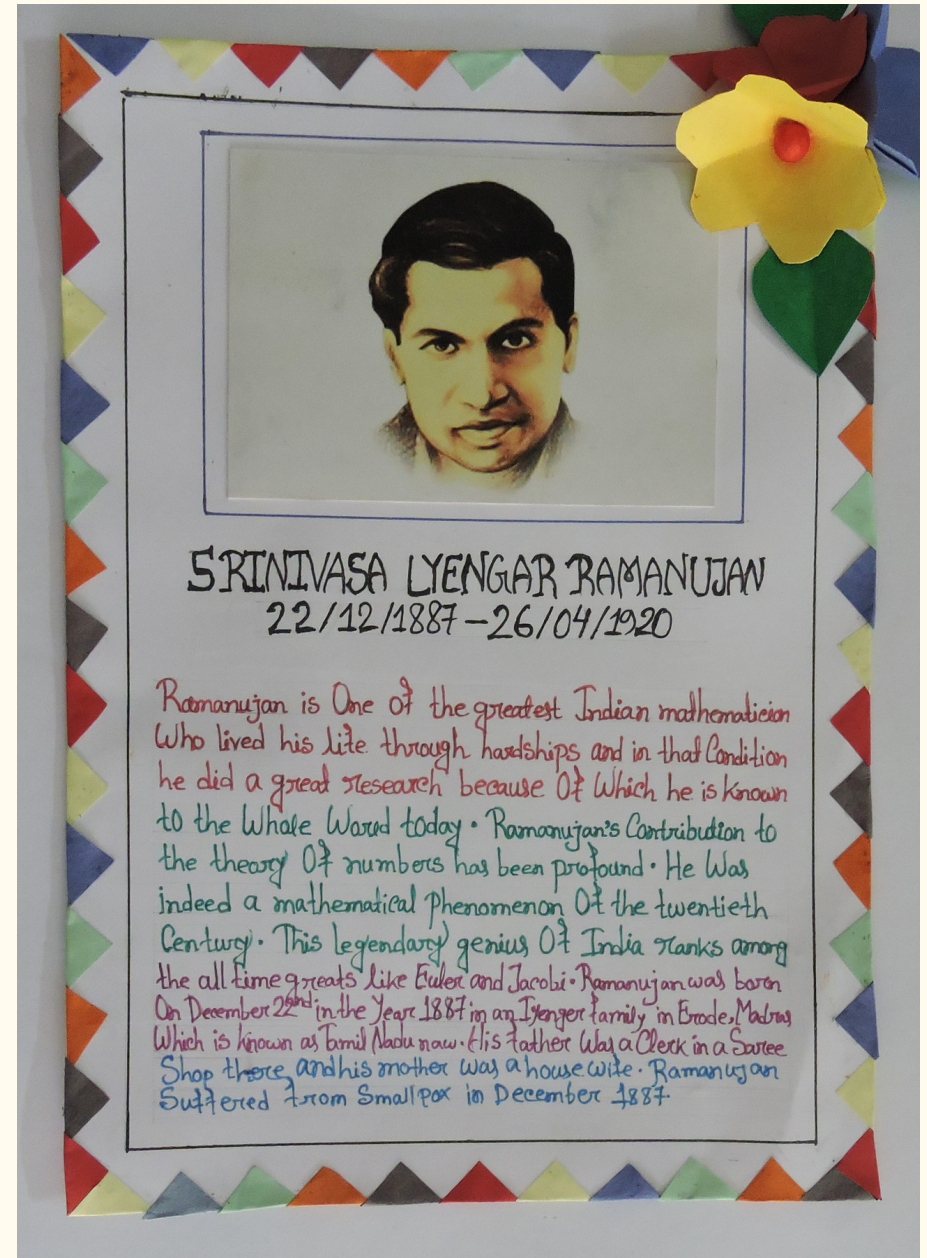 SRINIVASA LYENGAR RAMANUJAN
22/12/1887-26/04/1920
Ramanujan is One of the greatest Indian mathematician
Who lived his life through hardships and in that Condition
he did a great research because Of Which he is known
to the Whole Wored today. Ramanujan's Contribution to
the theory Of numbers has been profound. He Was
indeed a mathematical phenomenon Of the twentieth
Century. This legendary genius Of India ranks among
the all time greats like Euler and Jacobi. Ramanujan was born
On December 22nd in the Year 1887 in an Iyenger family in Erode, Madras
Which is known as Tamil Nadu now. His father Was a Clerk in a Saree
Shop there, and his mother was a house wife. Ramanujan
Suffered from Smallpox in December 1887.